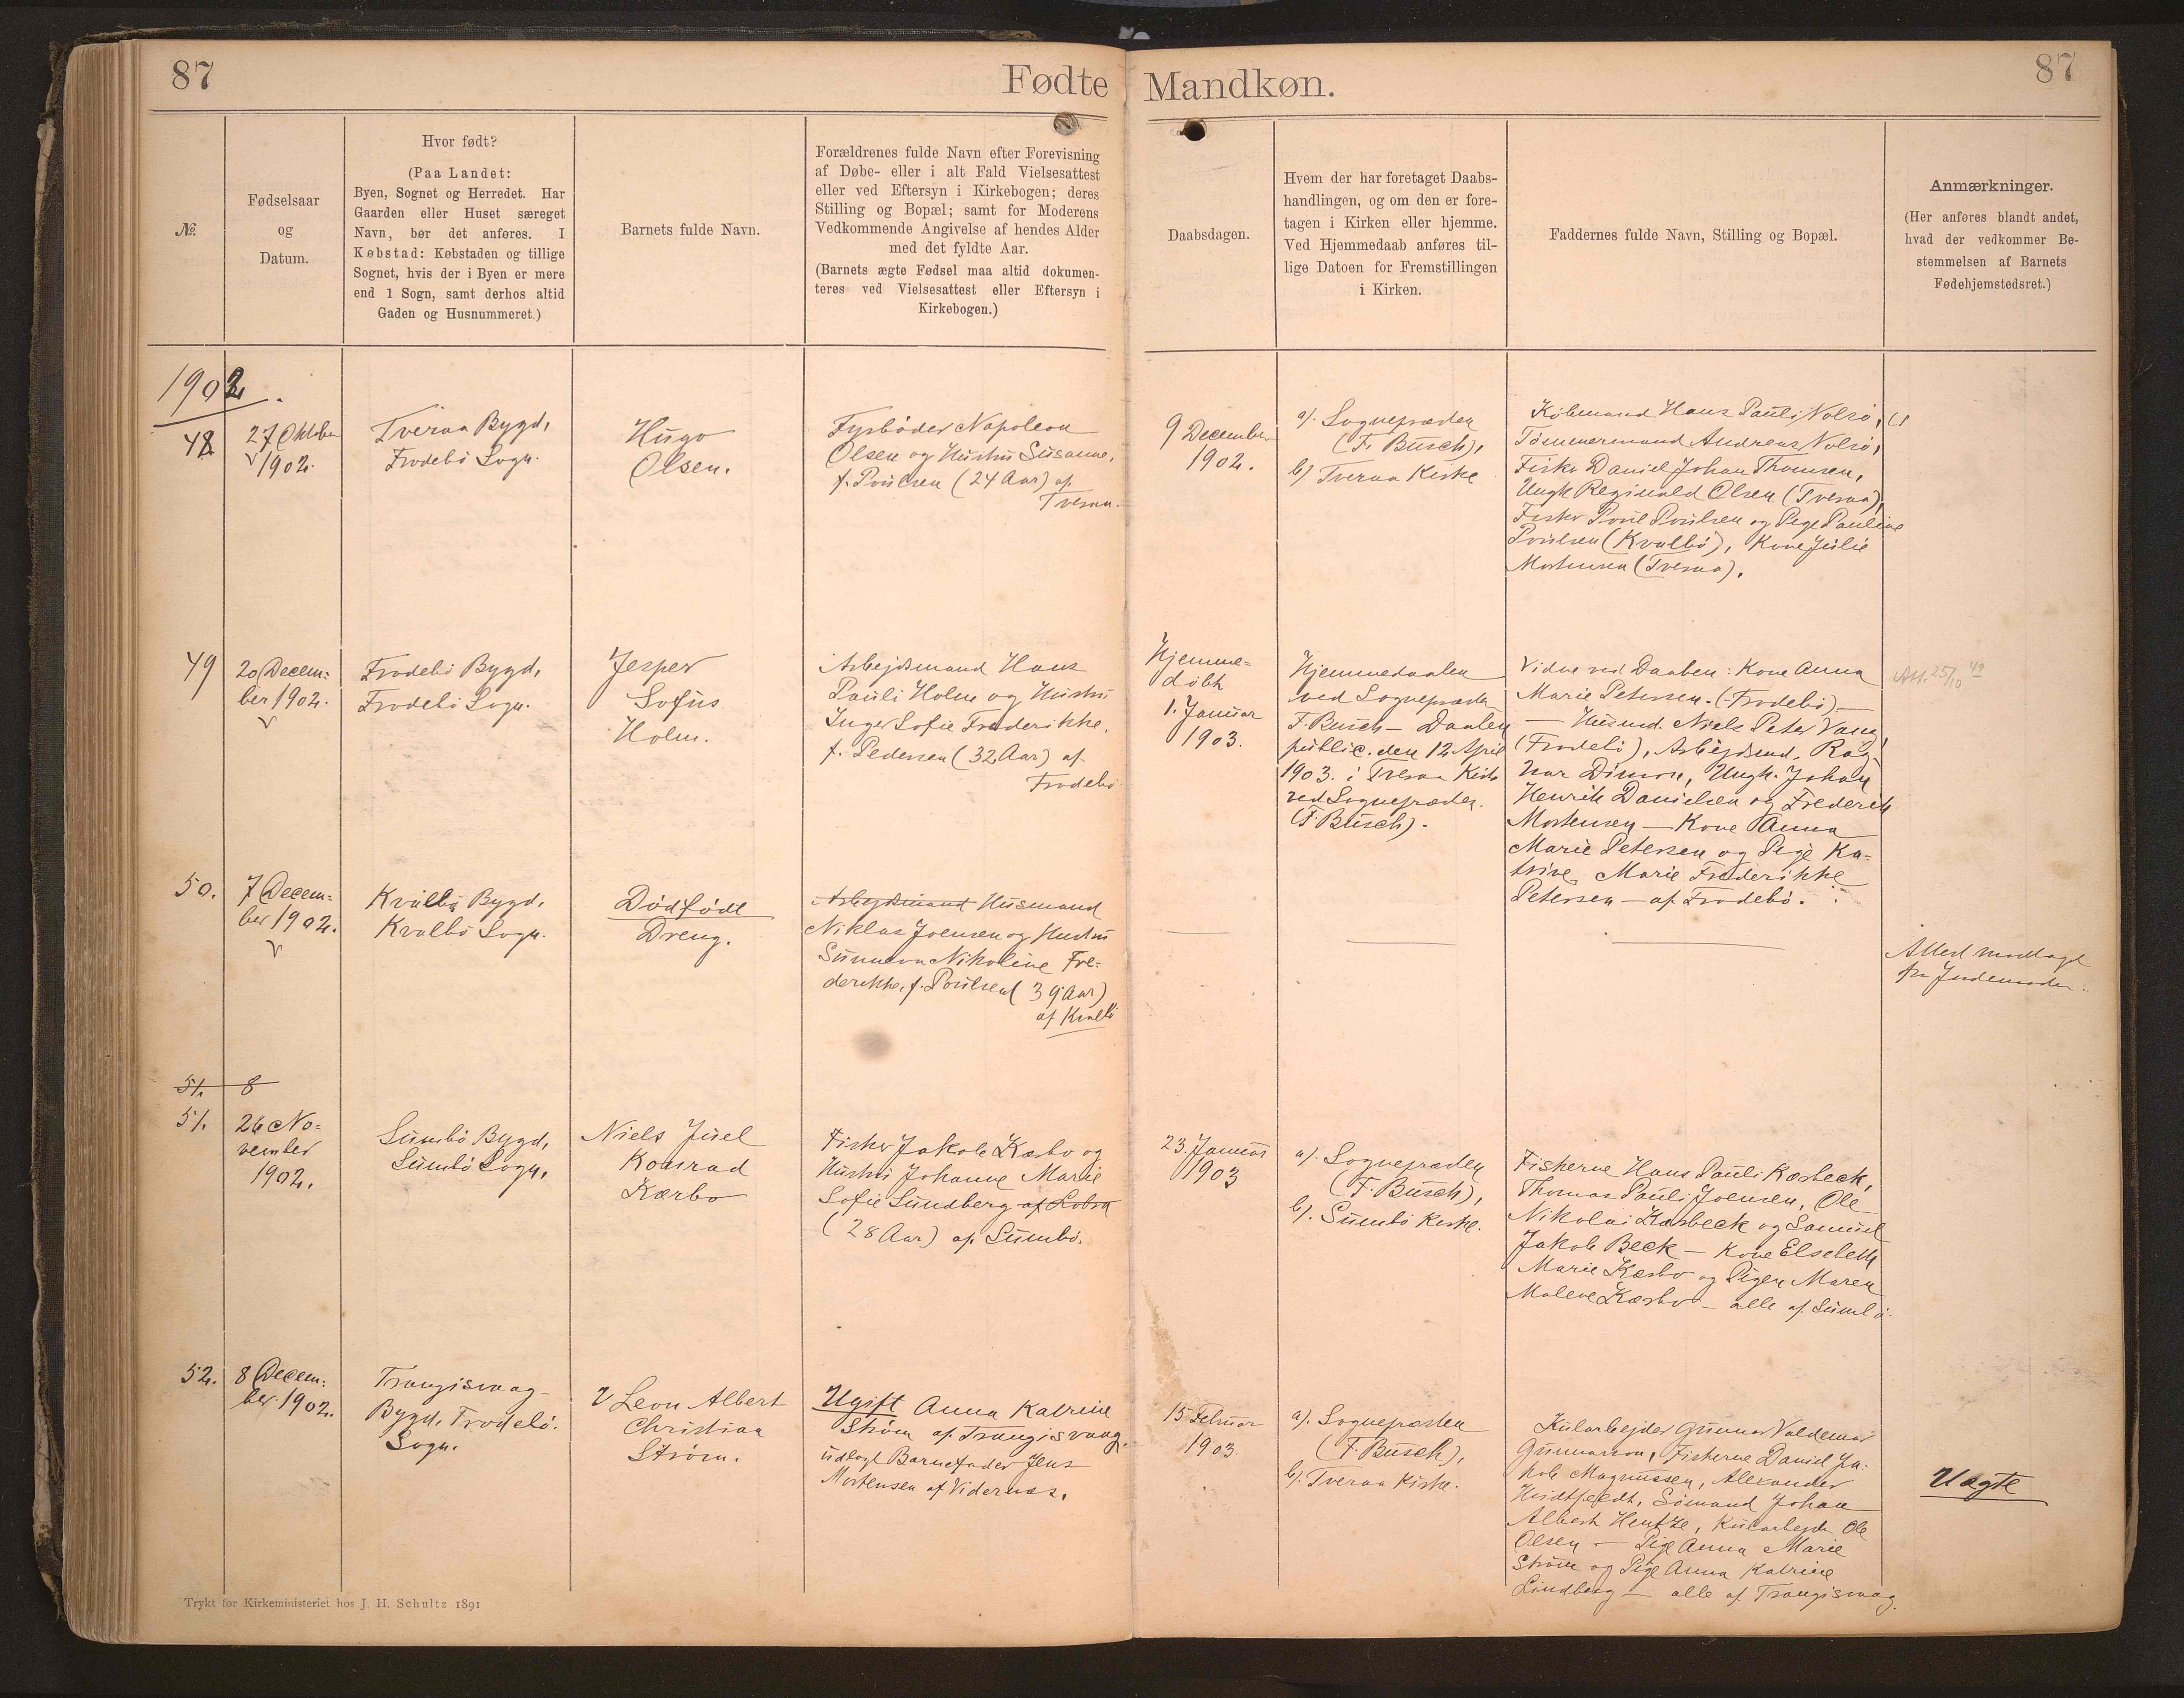 87
Fødte
Mandkøn.
87
№.
Fødselsaar
og
Datum.
Hvor født?
(Paa Landet:
Byen, Sognet og Herredet. Har
Gaarden eller Huset særeget
Navn, bør det anføres. I
Købstad: Købstaden og tillige
Sognet, hvis der i Byen er mere
end 1 Sogn, samt derhos altid
Gaden og Husnummeret.)
Barnets fulde Navn.
Forældrenes fulde Navn efter Forevisning
af Døbe- eller i alt Fald Vielsesattest
eller ved Eftersyn i Kirkebogen; deres
Stilling og Bopæl; samt for Moderens
Vedkommende Angivelse af hendes Alder
med det fyldte Aar.
(Barnets ægte Fødsel maa altid dokumen-
teres ved Vielsesattest eller Eftersyn i
Kirkebogen.)
Daabsdagen.
Hvem der har foretaget Daabs-
handlingen, og om den er fore-
tagen i Kirken eller hjemme.
Ved Hjemmedaab anføres til-
lige Datoen for Fremstillingen
i Kirken.
Faddernes fulde Navn, Stilling og Bopæl.
Anmærkninger.
(Her anføres blandt andet,
hvad der vedkommer Be-
stemmelsen af Barnets
Fødehjemstedsret.)
1902.
48
27 Oktober
1902.
Tveraa Bygd,
Frodebö Sogn.
Hugo
Olsen.
Fyrbøder Napoleon
Olsen og Hustru Susanne,
f. Poulsen (24 Aar) af
Tveraa.
9 December
1902.
a). Sognepræsten
(F. Busch),
b) Tveraa Kirke
Købmand Hans Pauli Nolsö,
Tømmermand Andreas Nolsö,
Fisker Daniel Johan Thomsen,
Ungk Reginald Olsen (Tveraa),
Fisker Poul Poulsen og Pige Pauline
Poulsen (Kvalbö), Kone Julie
Mortensen (Tveraa).
49
20 Decem-
ber 1902.
Frodebö Bygd,
Frodebö Sogn.
Jesper
Sofus
Holm.
Arbejdsmand Hans
Pauli Holm og Hustru
Inger Sofie Frederikke,
f. Pedersen (32 Aar) af
Frodebö
Hjemme-
döbt
1. Januar
1903.
Hjemmedaaben
ved Sognepræsten
F. Busch - Daaben
public. den 12 April
1903. i Tveraa Kirke
ved Sognepræsten.
(F. Busch).
Vidne ved Daaben: Kone Anna
Marie Petersen. (Frodebö) -
- Husmd. Niels Peter Vang,
(Frodebö), Arbejdsmd. Rag-
nar Dimon, Ungk. Johan
Henrik Danielsen og Frederik
Mortensen - Kone Anna
Marie Petersen og Pige Ka-
trine Marie Frederikke
Petersen - af Frodebö.
Att. 25/10 49
50.
7 Decem-
ber 1902.
Kvalbö Bygd,
Kvalbö Sogn.
Dødfødt
Dreng.
Arbejdsmand Husmand
Niklas Joensen og Hustru
Sunneva Nikoline Fre-
derikke, f. Poulsen (39 Aar)
af Kvalbö
Attest modtaget
fra Jordemoder.
51. 8
51.
26 No-
vember
1902.
Sumbö Bygd,
Sumbö Sogn.
Niels Juel
Konrad
Kærbo
Fisker Jakob Kærbo og
Hustru Johanne Marie
Sofie Lundberg af Lobra
(28 Aar) af Sumbö.
23. Januar
1903
a). Sognepræsten
(F. Busch),
b). Sumbö Kirke.
Fiskerne Hans Pauli Kærbeck,
Thomas Pauli Joensen, Ole
Nikolai Kærbeck og Samuel
Jakob Beck - Kone Elsebeth
Marie Kærbo og Pigen Maren
Malene Kærbo - alle af Sumbö.
52.
8 Decem-
ber 1902.
Trangisvaag-
Bygd, Frodebö.
Sogn.
Leon Albert
Christian
Strøm.
Ugift Anna Katrine
Strøm af Trangisvaag.
udlagt Barnefader Jens
Mortensen af Videræs.
15 Februar
1903.
a). Sognepræsten
(F. Busch),
b). Tveraa Kirke.
Kularbejder Gunnar Valdemar
Gunnarson, Fiskerne Daniel Ja-
kob Magnussen, Alexander
Hvidtfeldt, Sømand Johan
Albert Hentze, Kularbejder Ole
Olsen - Pige Anna Marie
Strøm og Pige Anna Katrine
Lindberg - alle af Trangisvaag.
Uægte
Trykt for Kirkeministeriet hos J. H. Schultz 1891